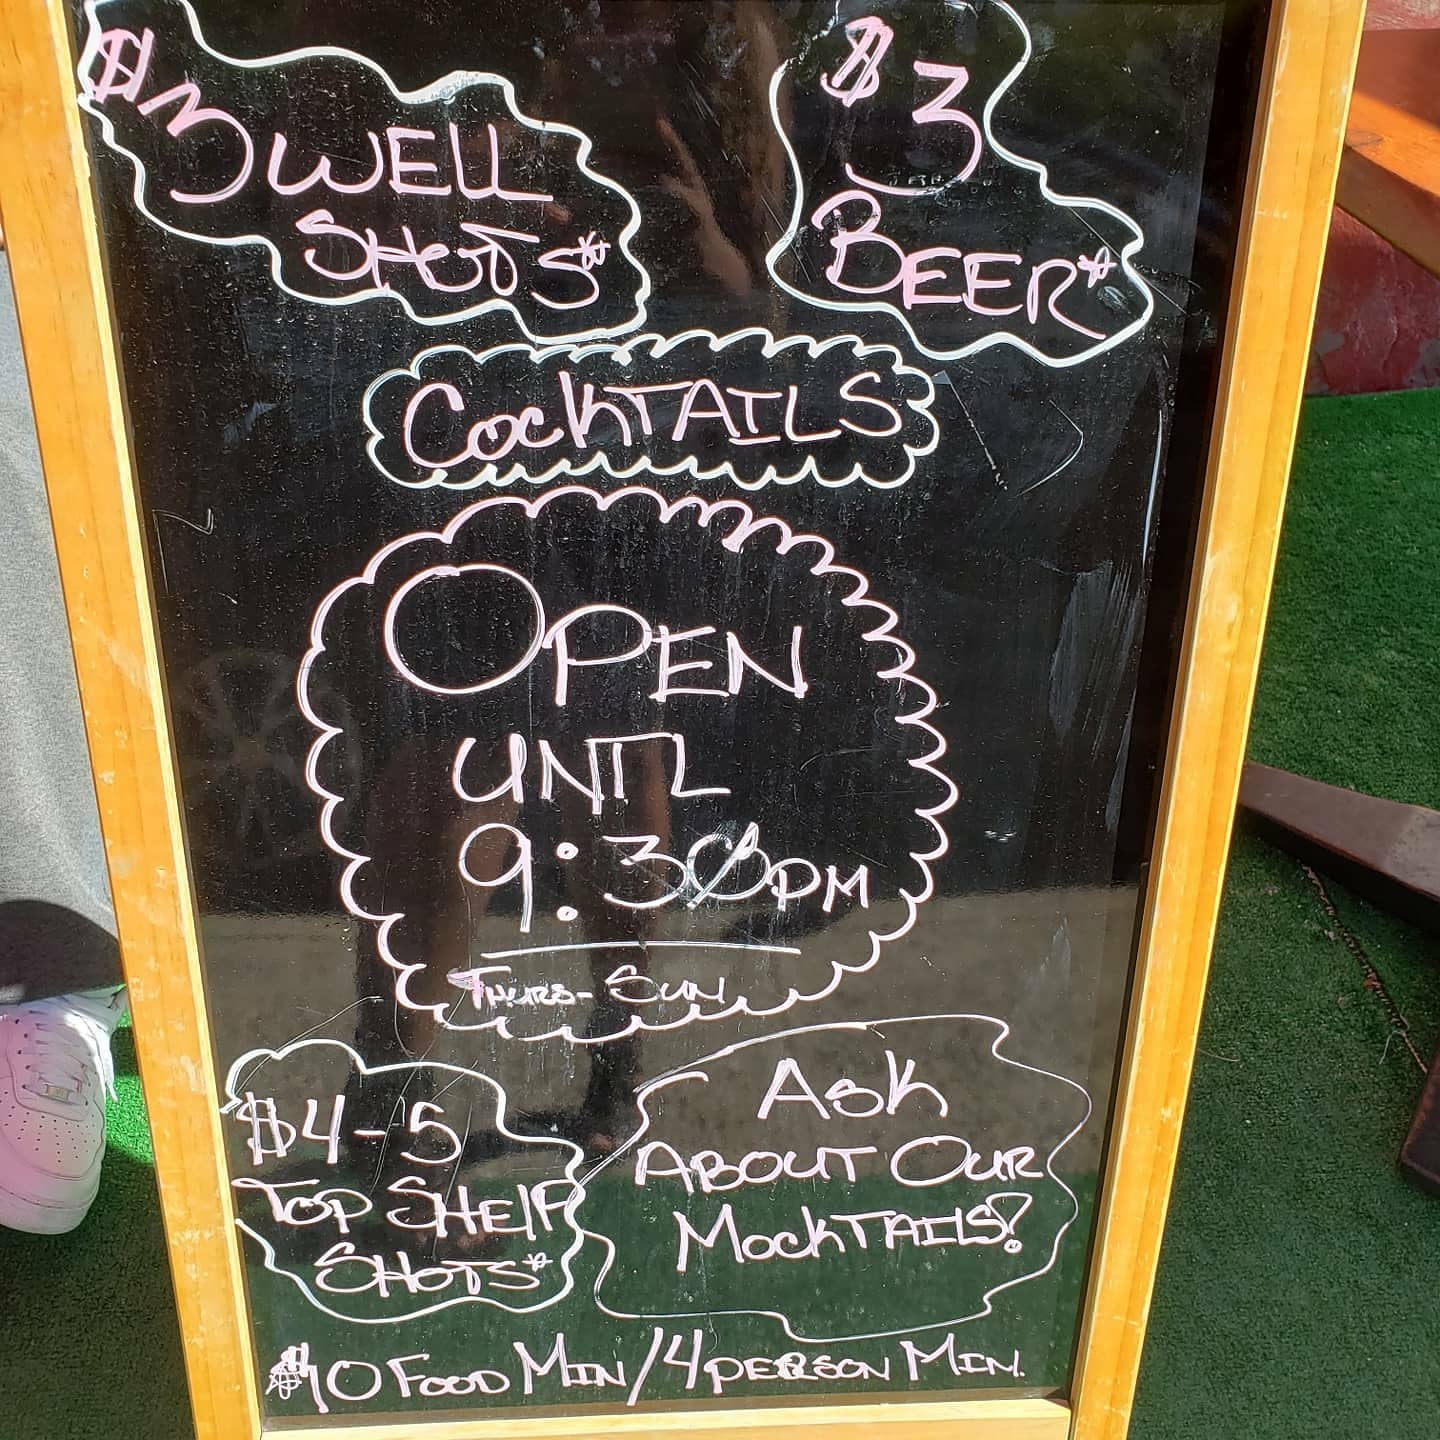 $3 WELL
SHOTS*
$3
BEER*
COCKTAILS
OPEN
UNTL
9:30PM
THURS- SUN
$4-5
TOP SHELF
SHOTS*
ASK
ABOUT OUR
MOCKTAILS?
$10 FOOD MIN/4 PERSON MIN.